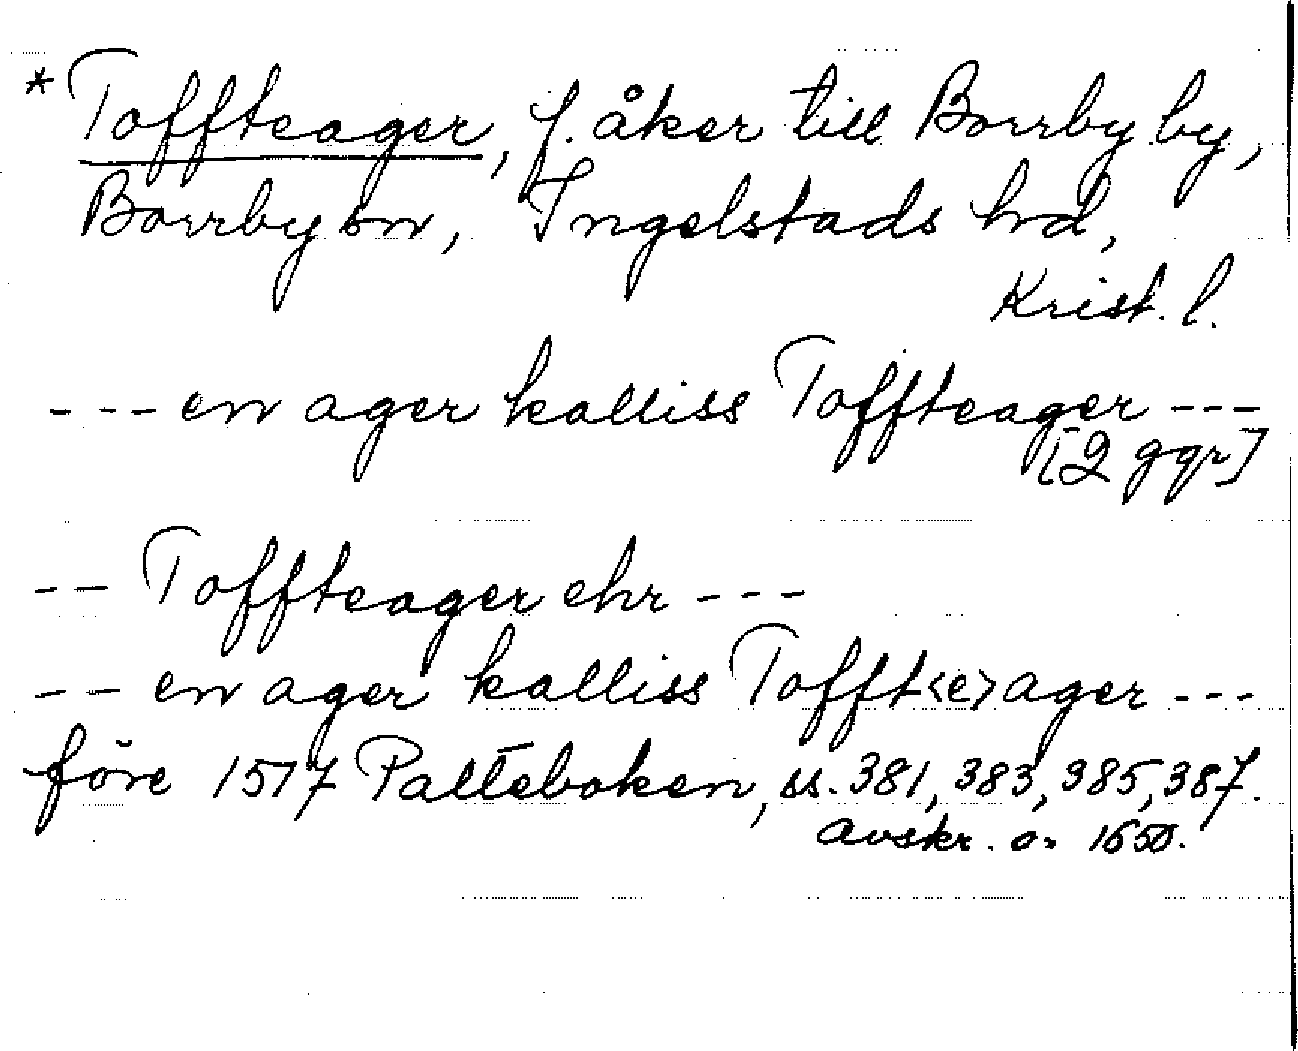 * Toffteager, f. åker till Borrby by,
Borrby sn, Ingelstads hd,
Krist. l.
--- en ager kalliss Toffteager ---
[2 ggr]
-- Toffteager ehr ---
-- en ager kalliss Tofft<e>ager ---
före 1517 Palteboken, ss. 381, 383, 385, 387.
Avskr. o. 1650.